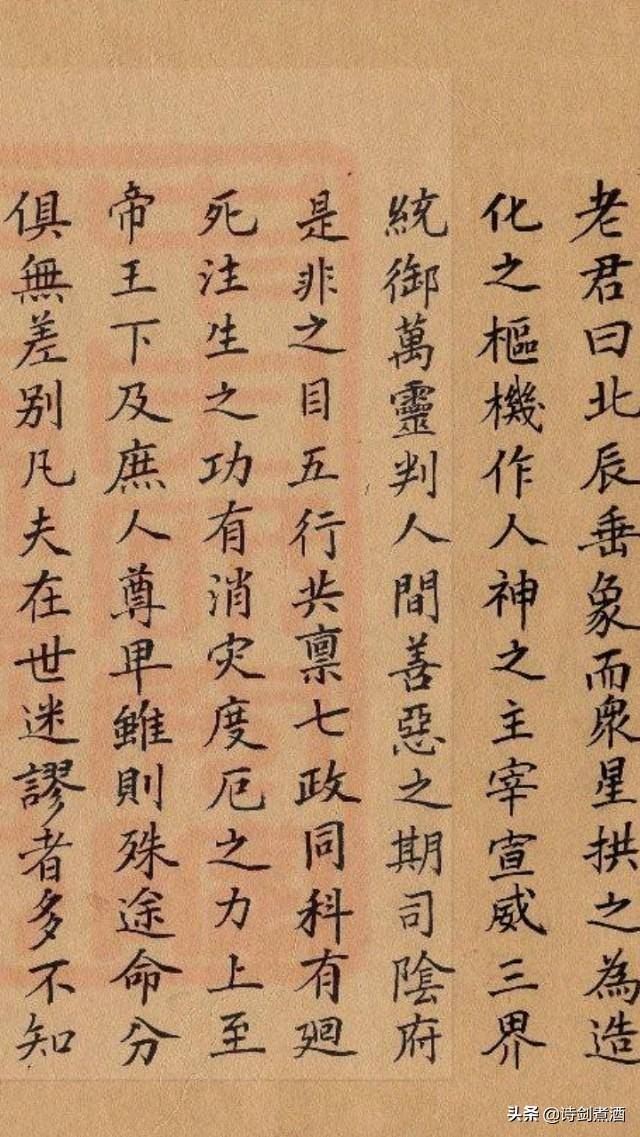 老君曰北辰垂象而衆星拱之為造
化之樞機作人神之主宰宣威三界
統御萬靈判人間善惡之期司陰府
是非之目五行共禀七政同科有廻
死注生之功有消灾度厄之力上至
帝王下及庶人尊卑雖則殊途命分
俱無差别凡夫在世迷謬者多不知
头条 @诗剑煮酒